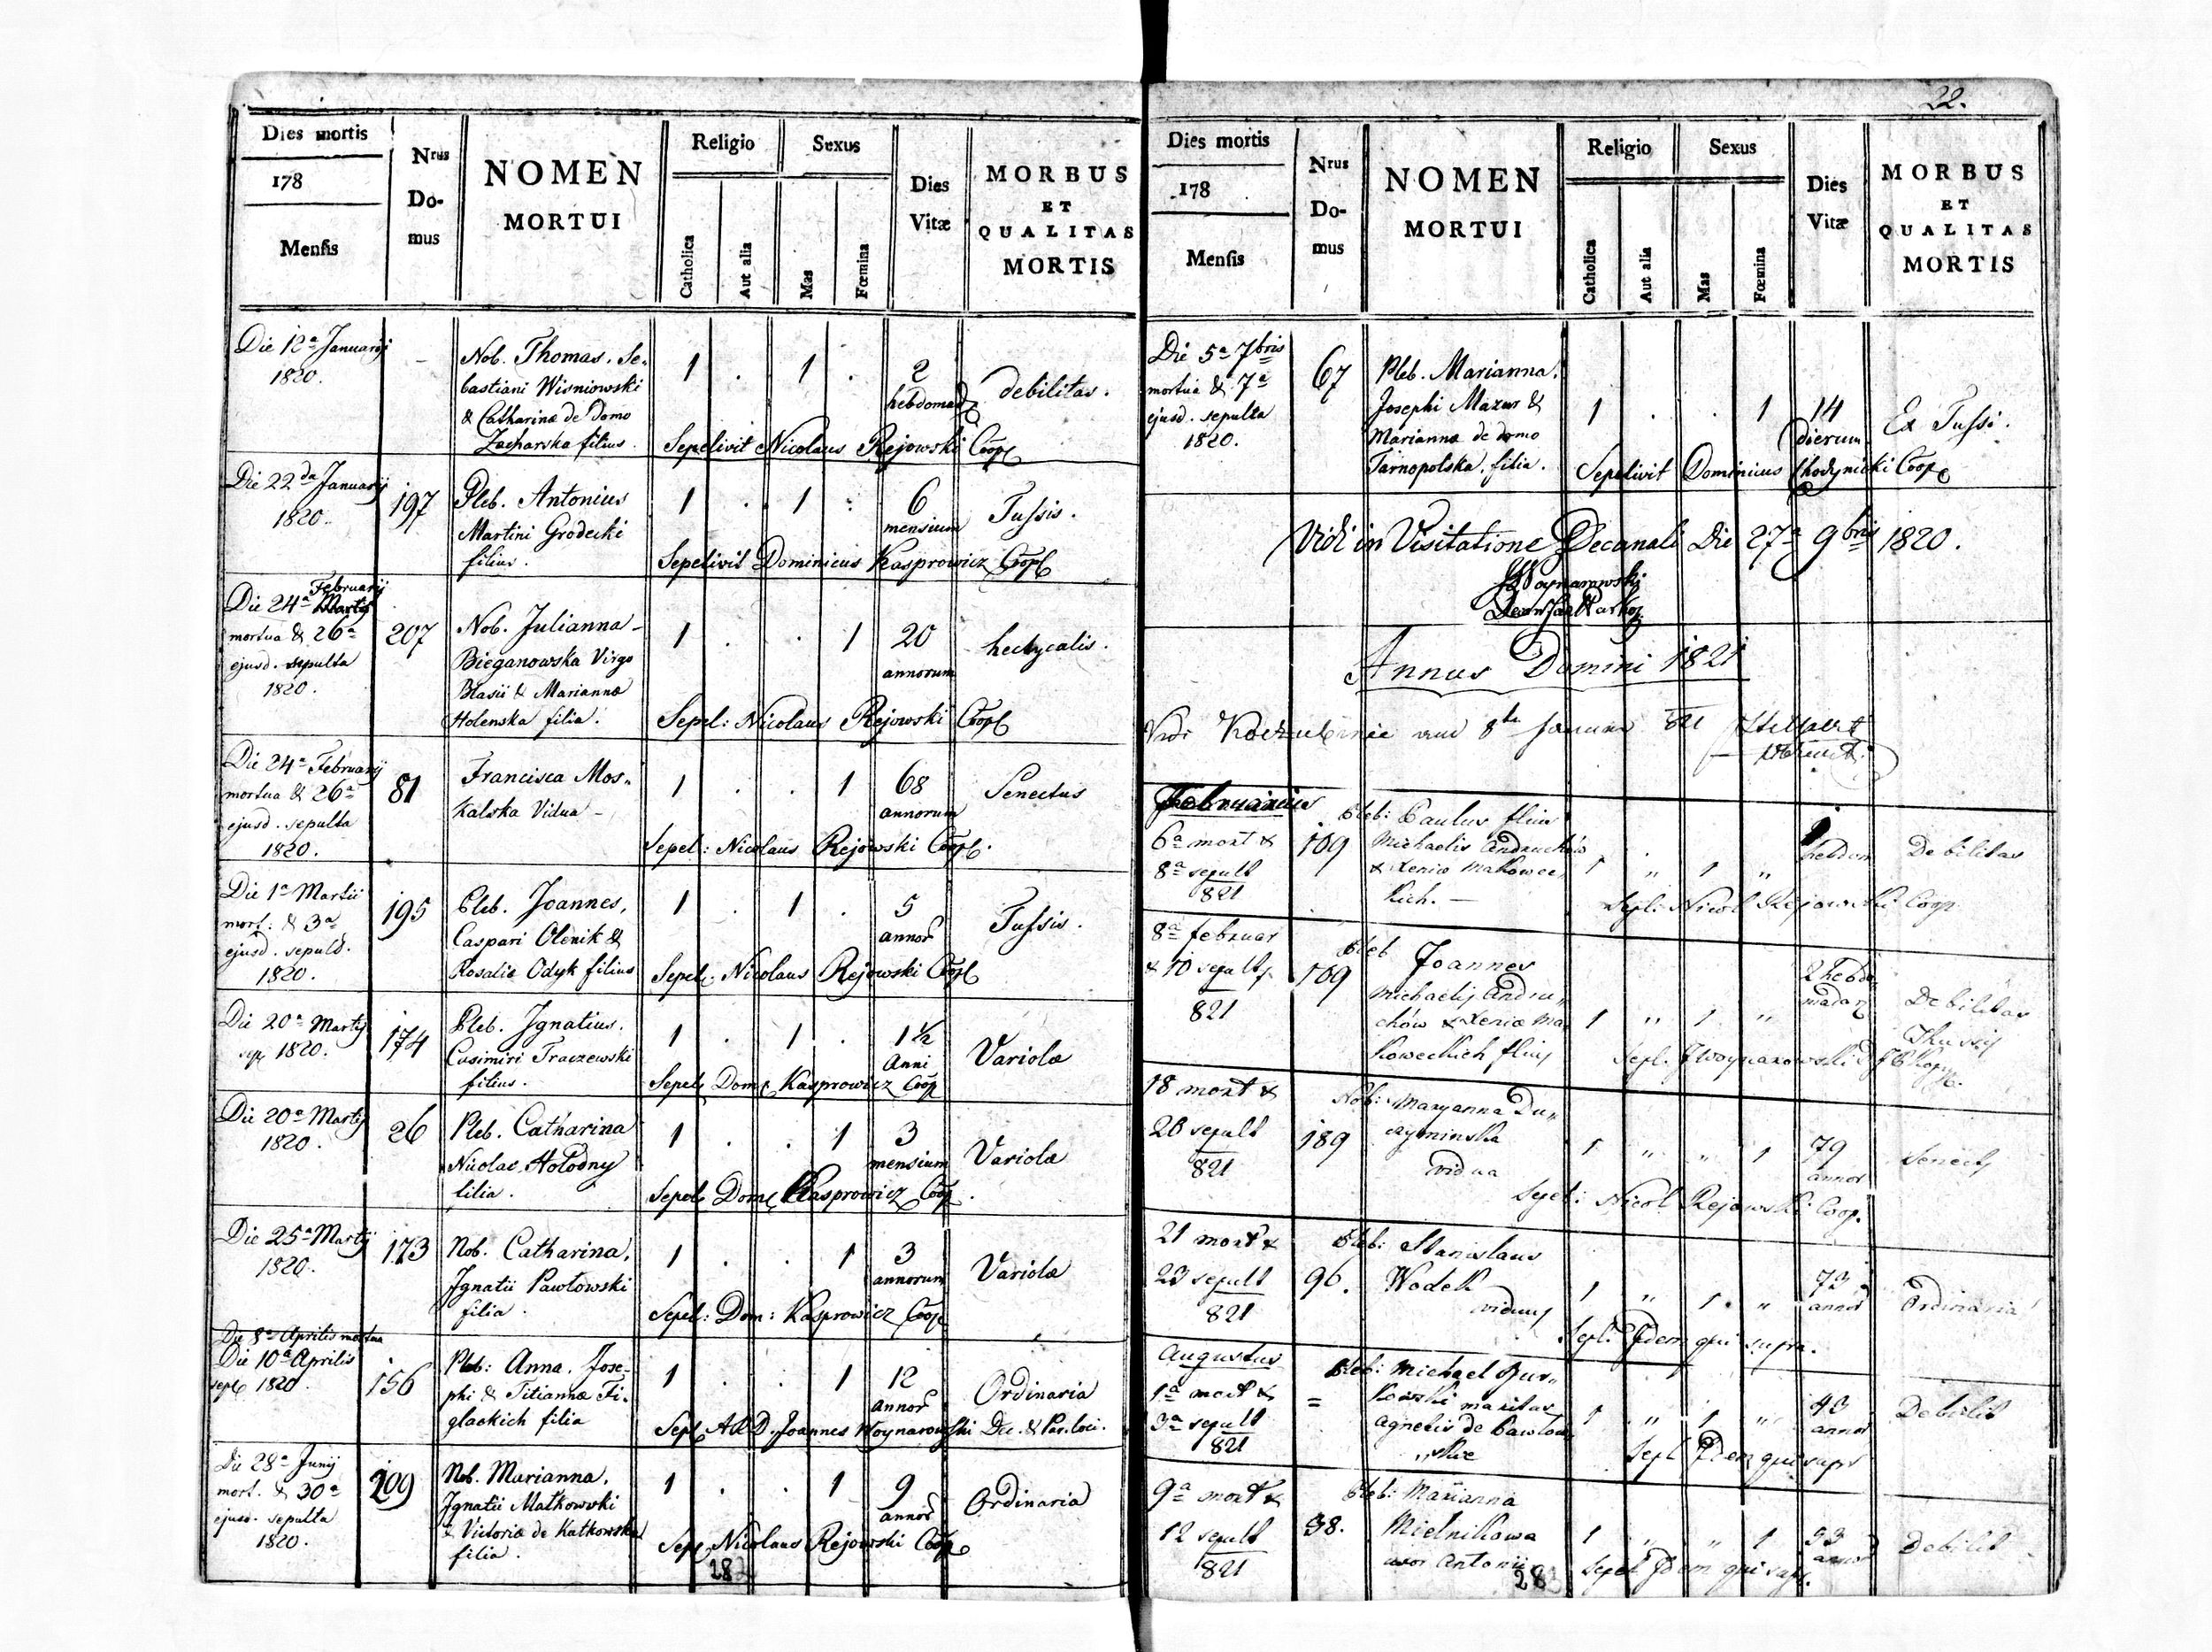 22.
Dies mortis
178
Mensis
Nrus
Do-
mus
NOMEN
MORTUI
Religio
Catholica
Aut alia
Sexus
Mas
Fœmina
Dies
Vitæ
MORBUS
ET
QUALITAS
MORTIS
Die 12ª Januarij
1820.
Nob. Thomas. Se-
bastiani Wisniowski
& Catharinæ de Domo
Zacharska filius.
1 . 1 .
2
hebdomad
debilitas.
Sepelivit Nicolaus Rejowski Coop
Die 22da Januarij
1820.
197
Pleb. Antonius
Martini Grodecki
filius.
1 . 1 .
6
mensium
Tussis.
Sepelivit Dominicus Kasprowicz Coop
Februarij
Die 24ª Martij
mortua & 26ª
ejusd. sepulta
1820.
207
Nob. Julianna
Bieganowska Virgo
Blasii & Mariannæ
Holenska filia.
1 . . 1
20
annorum
hectycalis.
Sepel: Nicolaus Rejowski Coop
Die 24ª Februarij
mortua & 26ª
ejusd. sepulta
1820.
81
Francisca Mos-
kalska Vidua
1 . . 1
68
annorum
Senectus
Sepel: Nicolaus Rejowski Coop.
Die 1ª Martii
mort: & 3ª
ejusd. sepult.
1820.
195
Pleb. Joannes,
Caspari Olenik &
Rosaliæ Odyk filius
1 . 1 .
5
annor
Tussis.
Sepel. Nicolaus Rejowski Coop
Die 20ª Martij
sep 1820.
174
Pleb. Ignatius.
Casimiri Traczewski
filius.
1 . 1 .
1½
Anni
Variolæ
Sepel Dom Kasprowicz Coop
Die 20ª Martij
1820.
26
Pleb. Catharina
Nicolai Hołodny
filia.
1 . . 1
3
mensium
Variolæ
Sepel Dom Kasprowicz Coop.
Die 25ª Martij
1820.
173
Nob. Catharina,
Ignatii Pawłowski
filia.
1 . . 1
3
annorum
Variolæ
Sepel: Dom: Kasprowicz Coop
Die 8ª Aprilis mortua
Die 10ª Aprilis
sepl 1820.
156
Pleb: Anna. Jose-
phi & Titiannæ Fi-
glackich filia
1 . . 1
12
annor
Ordinaria
Sepl A R D. Joannes Woynarowski Dec. & Par. loci.
Die 28ª Junij
mort. & 30ª
ejusd. sepulta
1820.
209
Nob. Marianna,
Ignatii Małkowski
& Victoriæ de Katkowska
filia.
1 . . 1
9
annor
Ordinaria
Sepl Nicolaus Rejowski Coop
282
Dies mortis
178
Mensis
Nrus
Do-
mus
NOMEN
MORTUI
Religio
Catholica
Aut alia
Sexus
Mas
Fœmina
Dies
Vitæ
MORBUS
ET
QUALITAS
MORTIS
Die 5ª 7bris
mortua & 7ª
ejusd. sepulta
1820.
67
Pleb. Marianna.
Josephi Mazur &
Mariannæ de domo
Tarnopolska. filia.
1 . . 1
14
dierum
Ex Tussi.
Sepelivit Dominicus Chodynicki Coop
Vidi in Visitatione Decanali Die 27ª 9bris 1820.
JWoynarowski
Annus Domini 1821
Vidi
8te Januar 821
Februarius
6ª mort &
8ª sepult
821
109
Pleb: Paulus filius
Michaelis Andruchów
& Xenia Makowec,,
kich.
1 ,, 1 ,,
hebdom
Debilitas
Sepl: Nicol Rejowski Coop
8ª februar
& 10 sepult.
821
109
Pleb Joannes
Michaelis Andru,,
chów & Xeniæ Ma,,
koweckich filius
1 ,, 1 ,,
2 hebdo
madar
Debilitas
Sepl. JWoynarowski
18 mort &
20 sepult
821
189
Nob: Maryanna Du,,
vidua
1 ,, ,, 1
79
annor
Senect
Sepel: Nicol Rejowski Coop.
21 mort &
23 sepult
821
96.
Pleb: Stanislaus
Wodek
viduus
1 ,, 1 ,,
73
annor
Ordinaria
Sepl. Idem qui supra.
Augustus
1ª mort &
3ª sepult
821
=
Pleb: Michael Bur,,
kowski maritus
Agnetis de Pawłow
,,skie
1 ,, 1 ,,
43
annor
Debilit
Sepl Idem qui supr
9ª mort &
12 sepult
821
38.
Pleb: Marianna
Mielnikowa
uxor Antonii
1 ,, ,, 1
53
annor
Debilit
Sepel Idem qui sup.
283